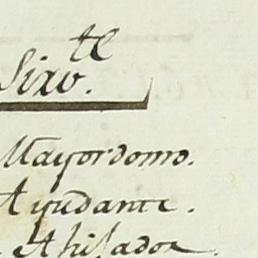 Sixv.te
Mayordomo.
Ayudante.
Afilador.